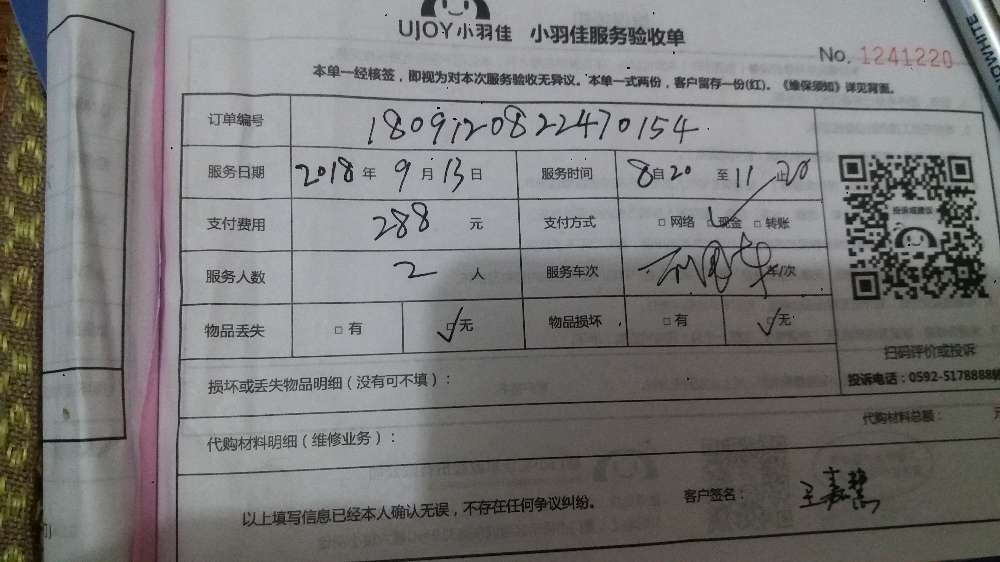 UJOY小羽佳 小羽佳服务验收单
No. 1241220
本单一经核签，即视为对本次服务验收无异议。本单一式两份，客户留存一份(红)。《维保须知》详见背面。
订单编号 180912082247​0154
服务日期 2018年9月13日 服务时间 8自20至11止20
支付费用 288元 支付方式 □网络 □现金 □转账
投诉或建议
服务人数 2人 服务车次 车/次
物品丢失 □有 ☑无 物品损坏 □有 ☑无
扫码评价或投诉
损坏或丢失物品明细（没有可不填）：
投诉电话：0592-5178888转
代购材料明细（维修业务）： 代购材料总额：
以上填写信息已经本人确认无误，不存在任何争议纠纷。 客户签名：王嘉慧